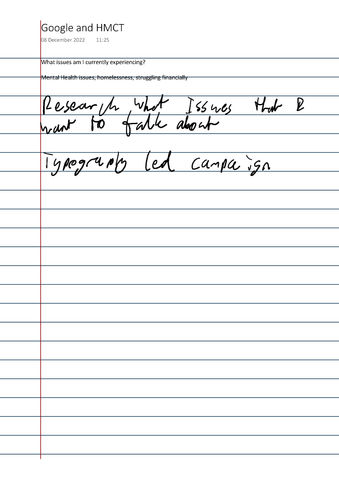 Google and HMCT
08 December 2022 11:25
What issues am I currently experiencing?
Mental Health issues, homelessness, struggling financially
Research what Issues that I
want to talk about
Typography led campaign